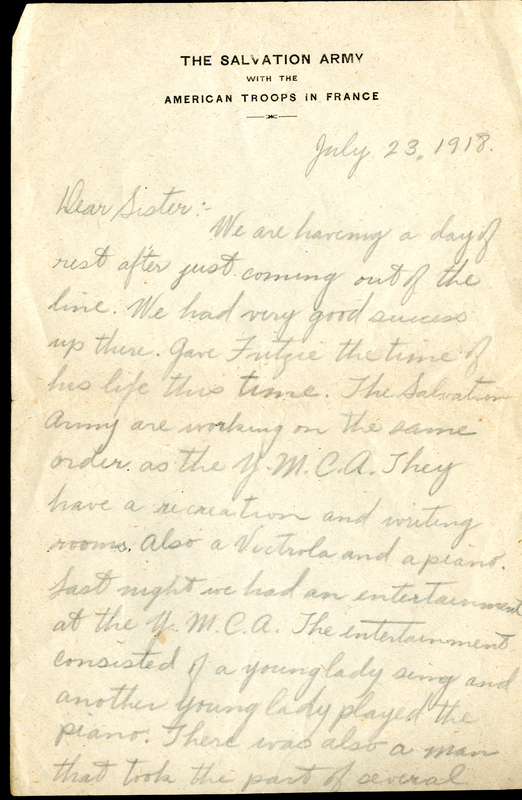 THE SALVATION ARMY
WITH THE
AMERICAN TROOPS IN FRANCE
July 23, 1918.
Dear Sister:-
We are having a day of
rest after just coming out of the
line. We had very good success
up there. Gave Fritzie the time of
his life this time. The Salvation
Army are working on the same
order as the Y.M.C.A. They
have a recreation and writing
rooms. Also a Victrola and a piano.
Last night we had an entertainment
at the Y.M.C.A. The entertainment
consisted of a young lady sing and
another young lady played the
piano. There was also a man
that took the part of several